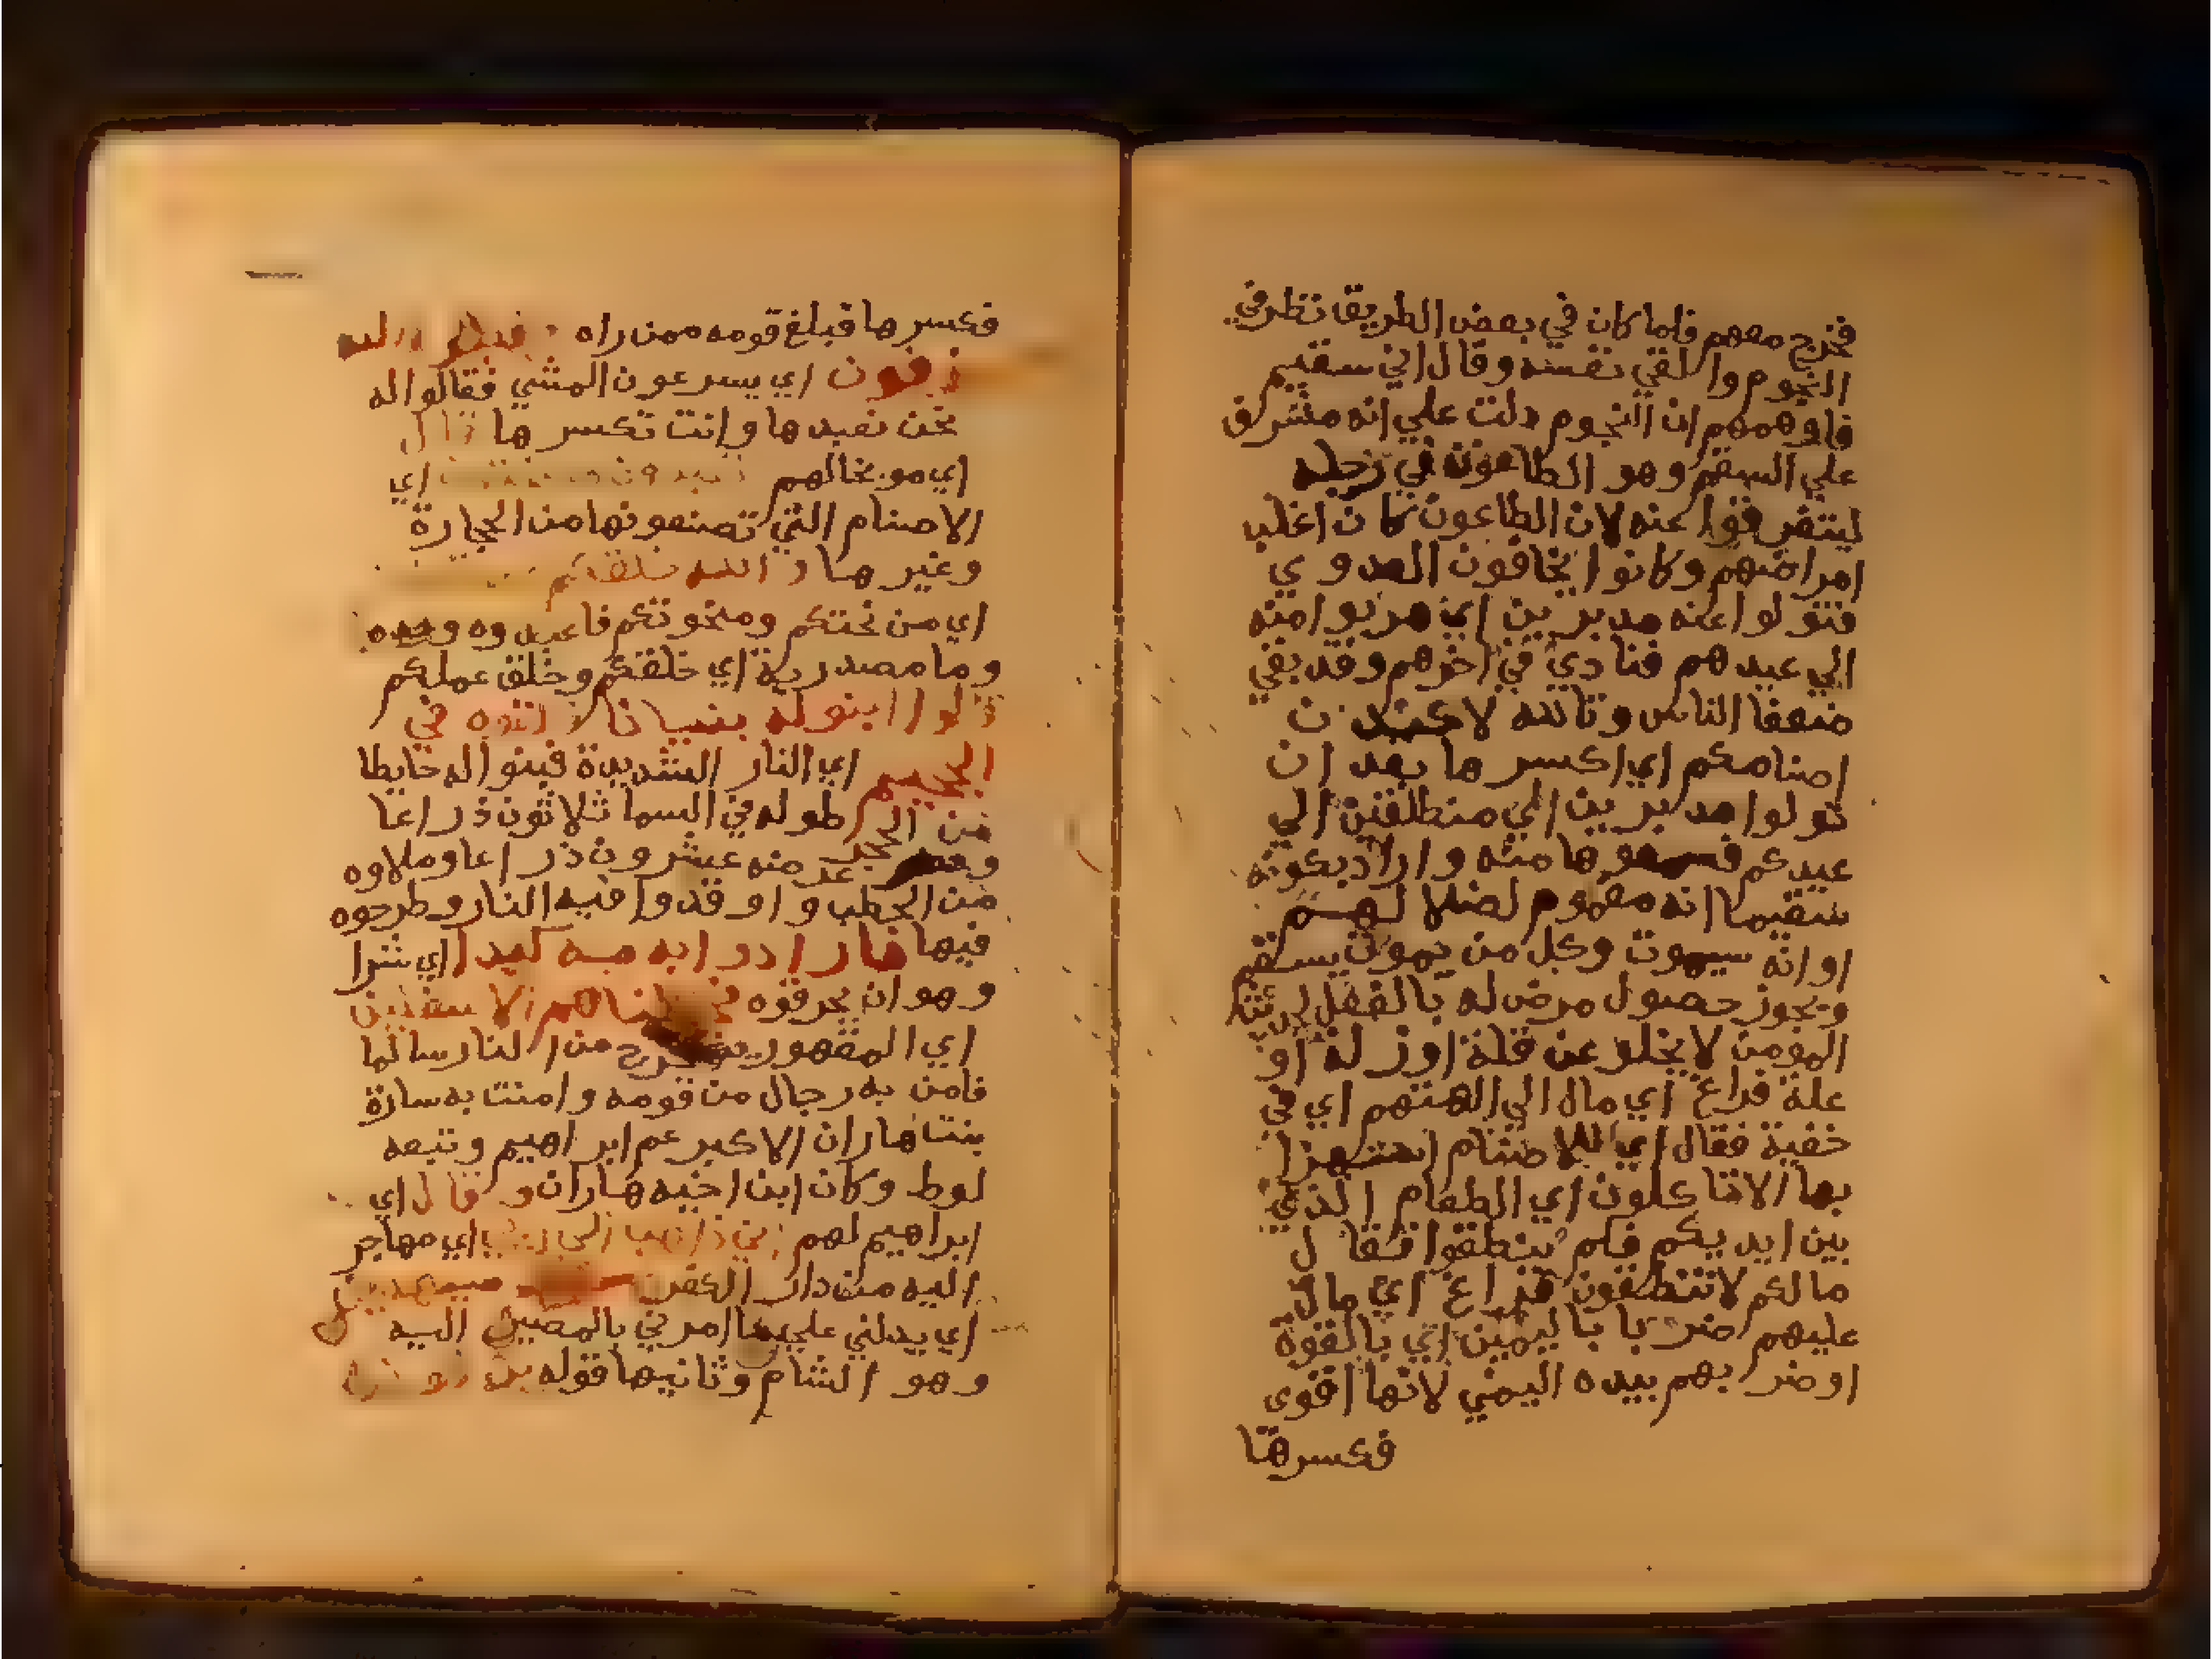 فخرج معهم فلما كان في بعض الطريق نظر في
النجوم والقي نفسه وقال اني سقيم
فاوهمهم ان النجوم دلت علي انه مشرف
علي السقم وهو الطاعون في رجله
ليتفرقوا عنه لان الطاعون كان اغلب
امراضهم وكانوا يخافون العدوي
فتولوا عنه مدبرين اي هربوا منه
الي عيدهم فنادي في اخرهم وقد بقي
ضعفا الناس وتالله لاكيدن
اصنامكم اي اكسرها بعد ان
تولوا مدبرين اي منطلقين الي
عيدكم فسمعوها منه واراد بكونه
سقيما انه مغموم لضلالهم
او انه سيموت وكل من يموت يسقم
ويجوز حصول مرض له بالفعل
المومن لا يخلو عن قلة او زلة او
علة فراغ اي مال الي الهتهم اي في
خفية فقال اي للاصنام استهزا
بها الا تاكلون اي الطعام الذي
بين ايديكم فلم ينطقوا فقال
مالكم لا تنطقون فراغ اي مال
عليهم ضربا باليمين اي بالقوة
او ضربهم بيده اليمني لانها اقوى
فكسرها
فكسرها فبلغ قومه ممن راه
يزفون اي يسرعون المشي فقالوا له
نحن نعبدها وانت تكسرها قال
اي موبخا لهم اي
الاصنام التي تصنعونها من الحجارة
وغيرها والله خلقكم
اي من نحتكم ومنحوتكم فاعبدوه وحده
وما مصدرية اي خلقكم وخلق عملكم
قالوا ابنوا له بنيانا فالقوه في
الجحيم اي النار الشديدة فبنوا له حايطا
من الحجر طوله في السما ثلاثون ذراعا
منه عشرون ذراعا وملاوه
من الحطب واوقدوا فيه النار وطرحوه
فيها فارادوا به كيدا اي شرا
وهو ان يحرقوه فجعلناهم الاسفلين
اي المقهورين فخرج من النار سالما
فامن به رجال من قومه وامنت به سارة
بنت هاران الاكبر عم ابراهيم وتبعه
لوط وكان ابن اخيه هاران وقال اي
ابراهيم لهم اني ذاهب الي ربي اي مهاجر
اليه من دار الكفر سيهدين
اي يدلني علي ما امرني بالمصير اليه
وهو الشام وثانيها قوله